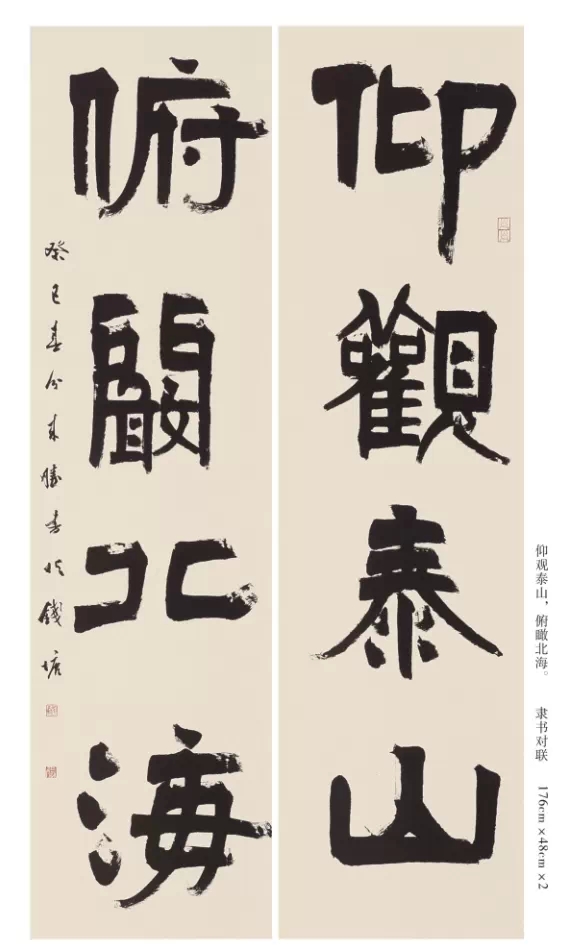 仰觀泰山
俯闞北海
癸巳春分来勝书於錢塘
仰观泰山，俯瞰北海。 隶书对联 176cm×48cm×2